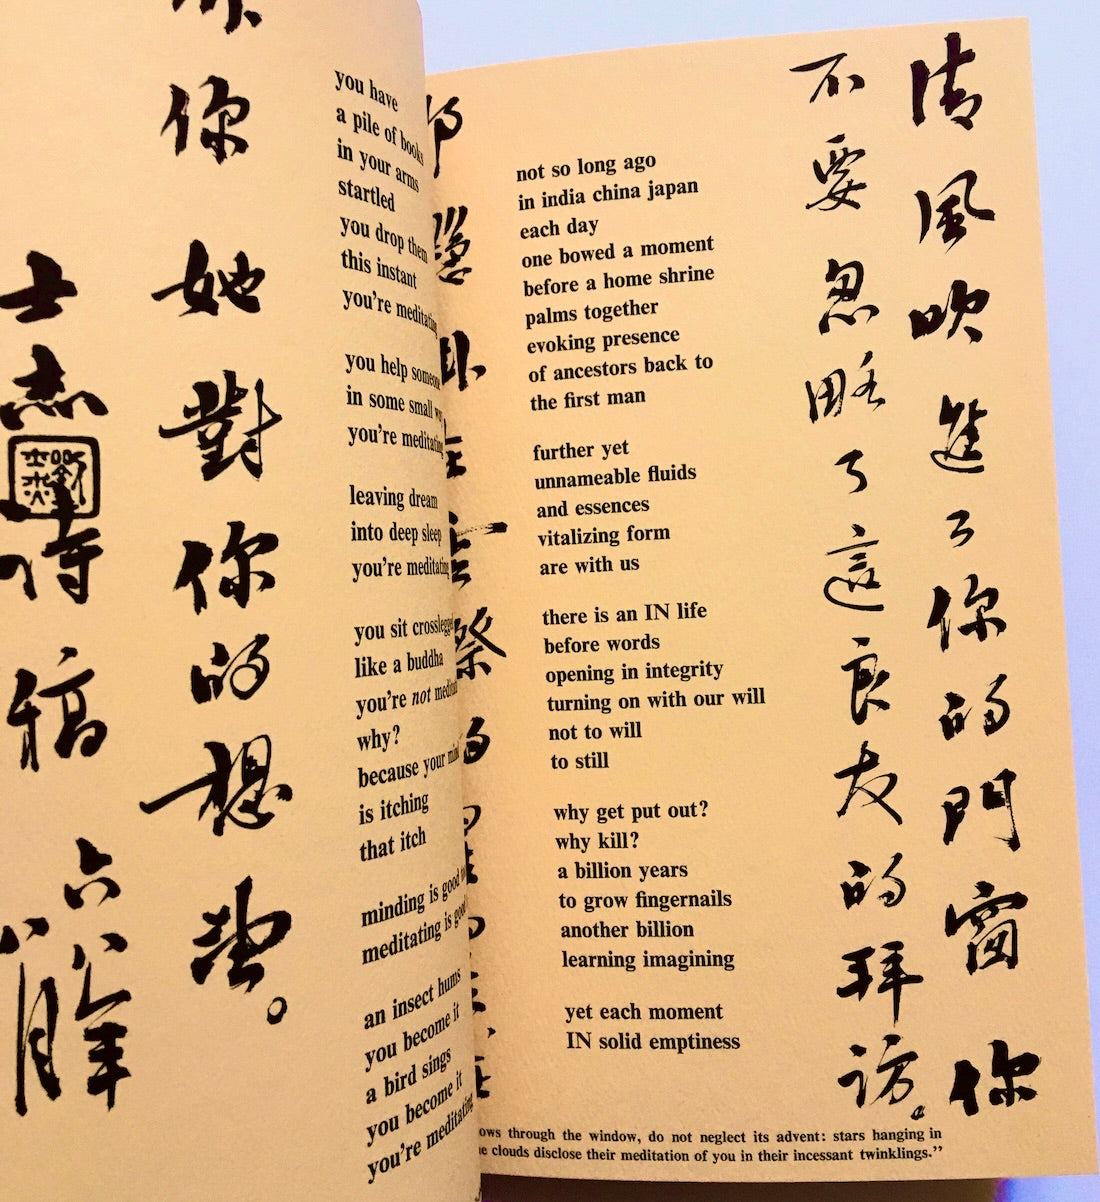 你她對你的想
士杰
詩稿
六八年
you have
a pile of books
in your arms
startled
you drop them
this instant
you're meditating
you help someone
in some small
you're meditating
leaving dream
into deep sleep
you're meditating
you sit crosslegged
like a buddha
you're not
why?
because your mind
is itching
that itch
minding is good
meditating is good
an insect hums
you become it
a bird sings
you become it
you're meditating
清風吹進了你的門窗你
不要忽略了這良友的拜訪。
not so long ago
in india china japan
each day
one bowed a moment
before a home shrine
palms together
evoking presence
of ancestors back to
the first man
further yet
unnameable fluids
and essences
vitalizing form
are with us
there is an IN life
before words
opening in integrity
turning on with our will
not to will
to still
why get put out?
why kill?
a billion years
to grow fingernails
another billion
learning imagining
yet each moment
IN solid emptiness
through the window, do not neglect its advent: stars hanging in
clouds disclose their meditation of you in their incessant twinklings.”